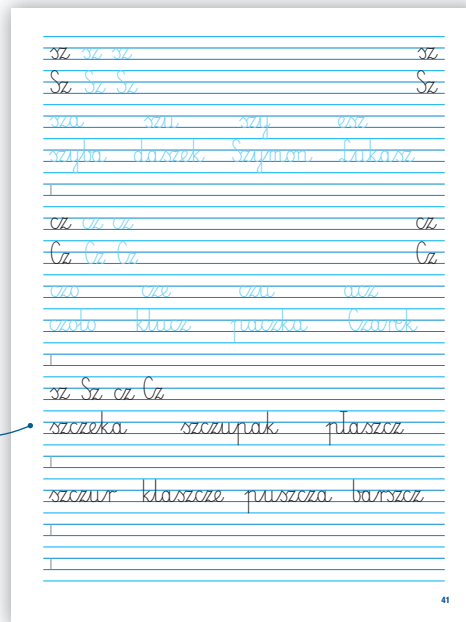 sz sz sz sz
Sz Sz Sz Sz
sza szu szy esz
szyba daszek Szymon Łukasz
cz cz cz cz
Cz Cz Cz Cz
czo cze czu acz
czoło klucz paczka Czarek
sz Sz cz Cz
szczeka szczupak płaszcz
szczur klaszcze puszcza barszcz
41